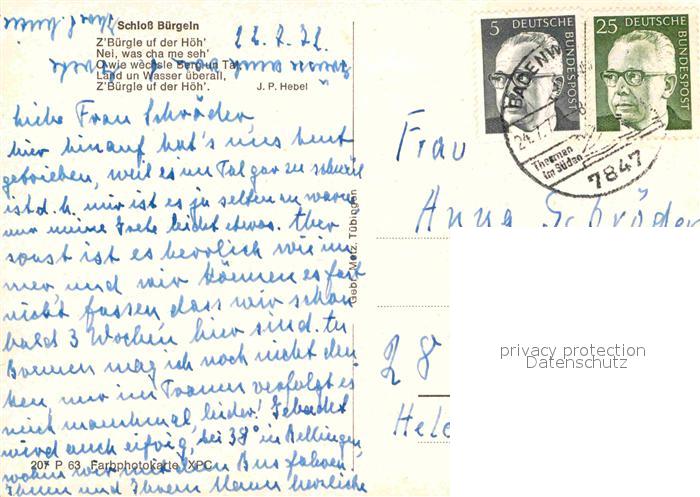 Schloß Bürgeln
Z'Bürgle uf der Höh'
Nei, was cha me seh'
O wie wechsle Berg un Tal
Land un Wasser überall,
Z'Bürgle uf der Höh'.
J. P. Hebel
22.7.72
Liebe Frau Schröder,
hier hinauf hat's uns heut
getrieben, weil es im Tal gar zu schwül
ist d. h. mir ist es ja selten zu warm
nur meine Grete leidet etwas. Aber
sonst ist es herrlich wie im
mer und wir können es fast
nicht fassen dass wir schon
bald 3 Wochen hier sind. An
Bremen mag ich noch nicht den
ken, nur im Traum verfolgt es
mich manchmal, leider! Gebadet
wird auch eifrig, bei 38° in Bellingen,
wohin wir mit dem Bus fahren.
Ihnen und Ihrem Mann herzliche
207 P 63 Farbphotokarte XPC
Gebr. Metz, Tübingen
5 DEUTSCHE BUNDESPOST
25 DEUTSCHE BUNDESPOST
BADENW
Thermen
im Süden
7847
Frau
Anna Schröder
28
privacy protection
Datenschutz